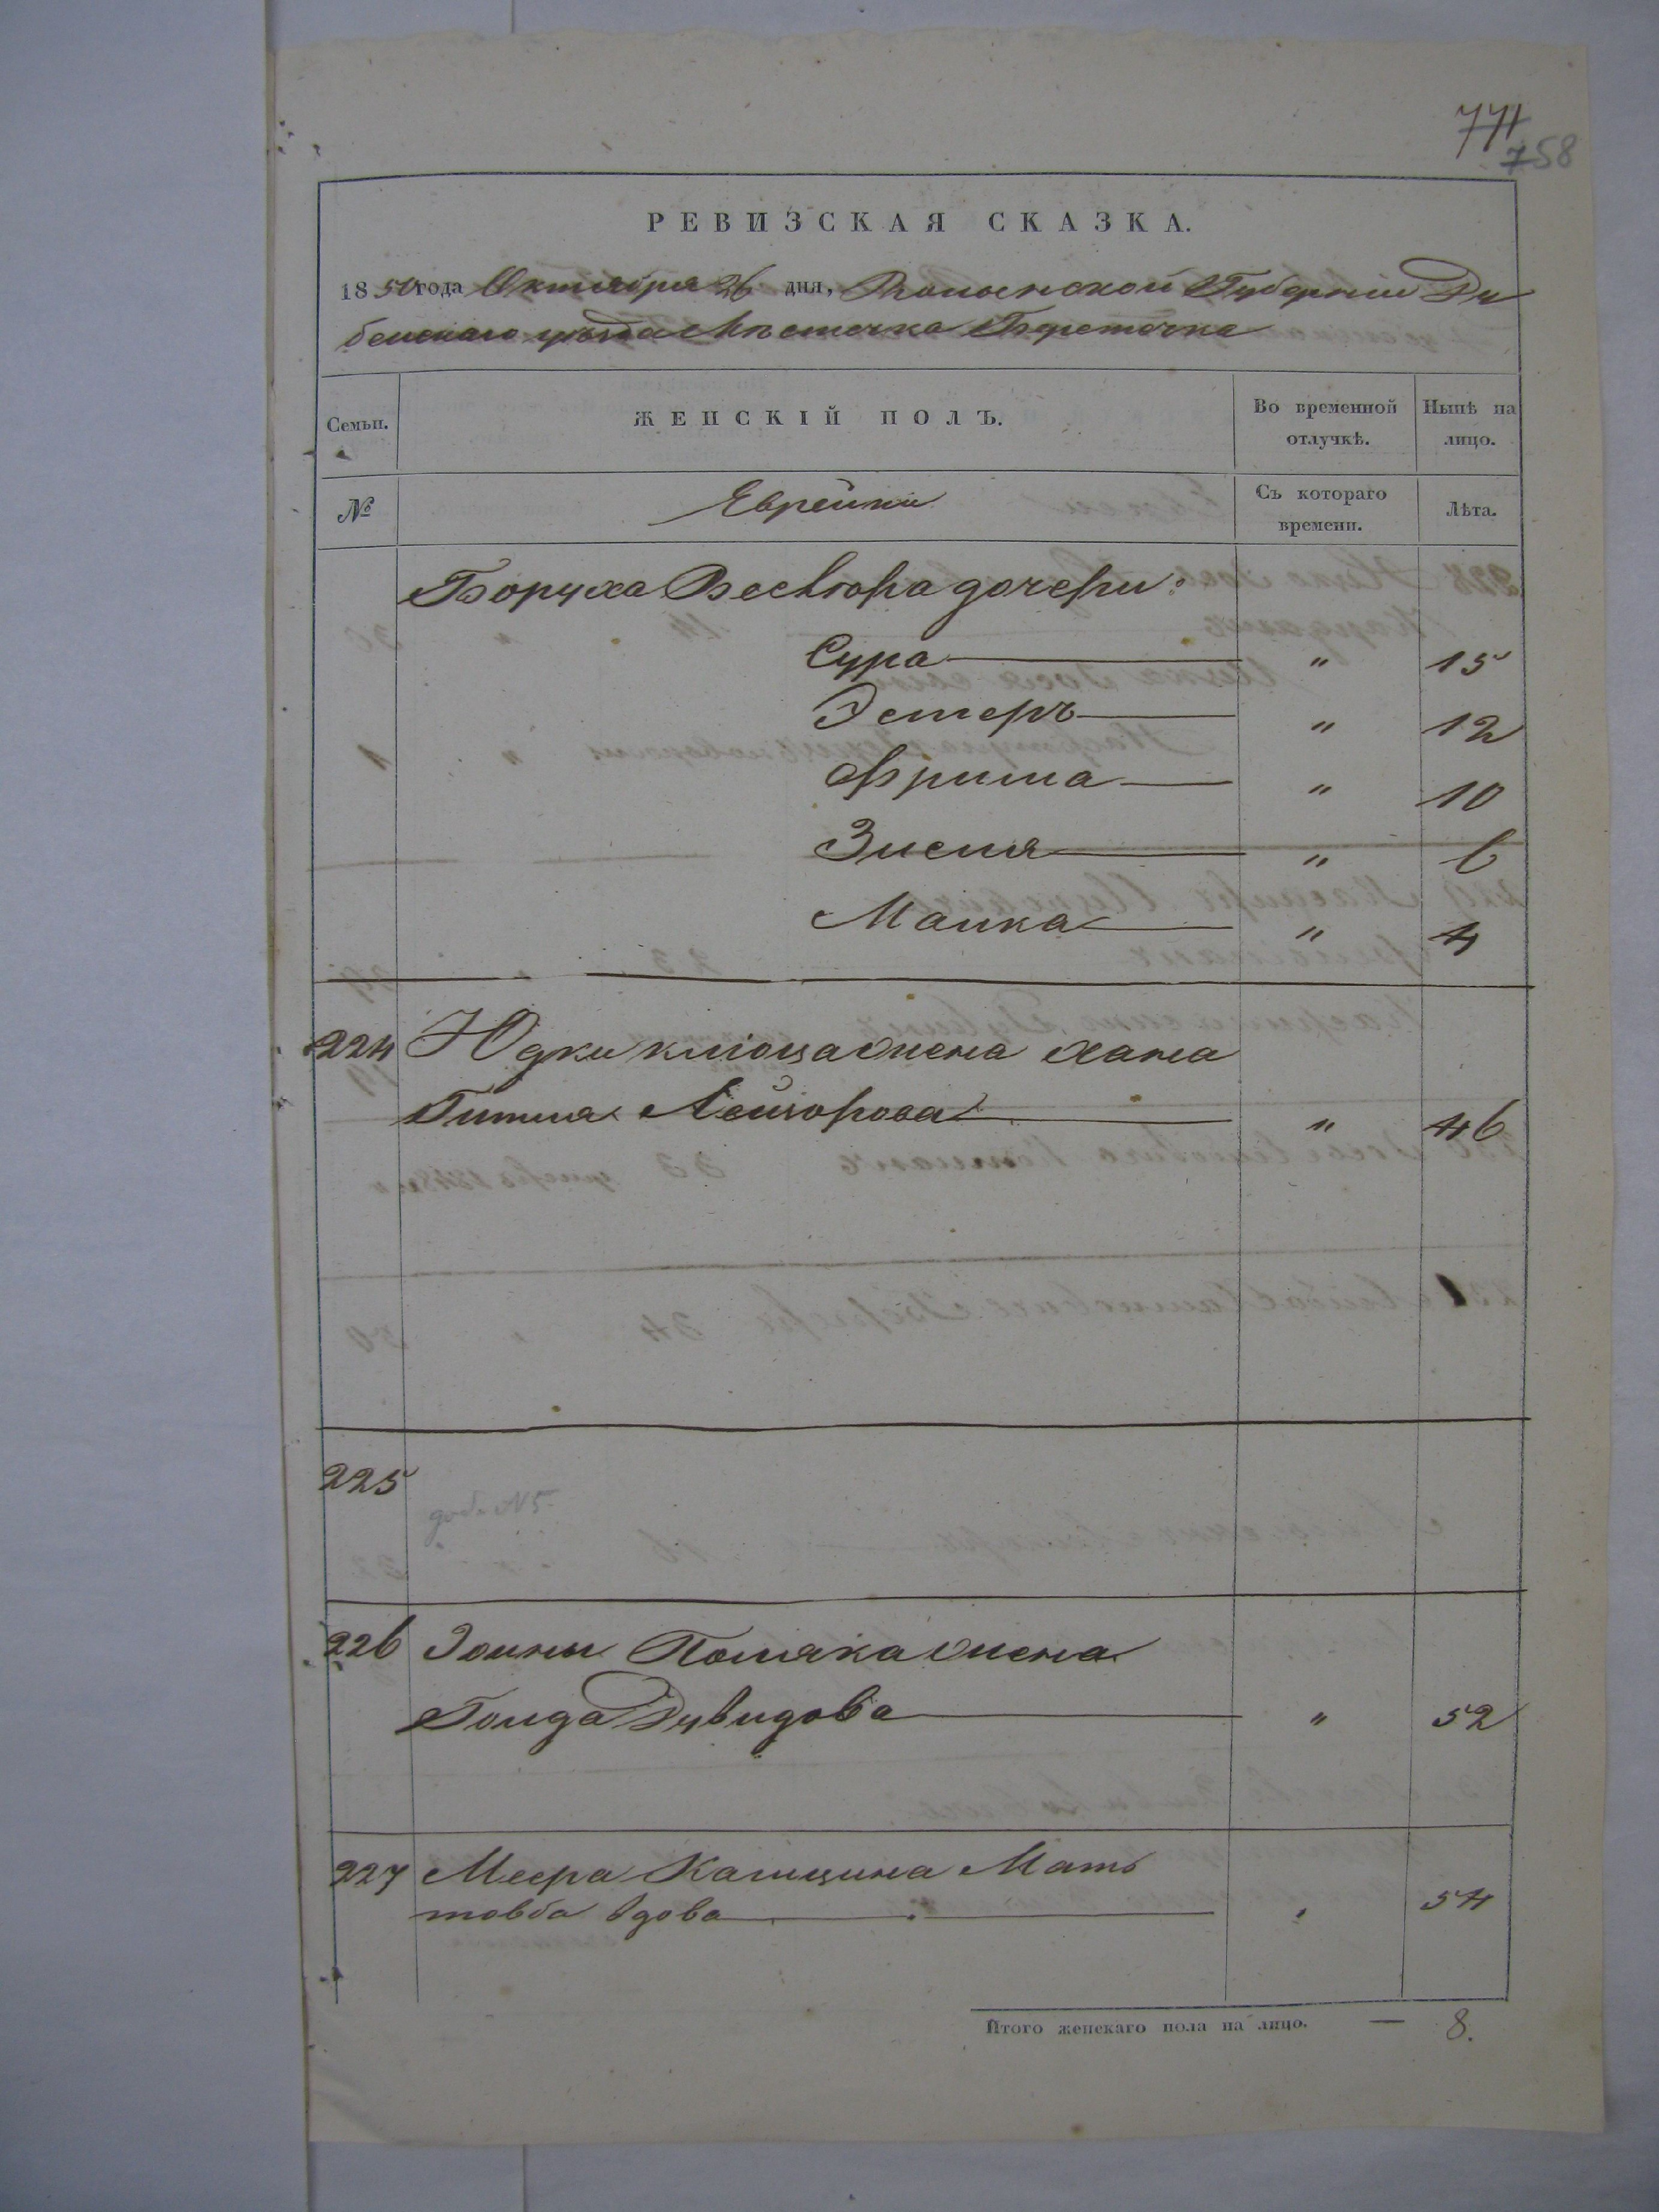 771
758
РЕВИЗСКАЯ СКАЗКА.
1850 года Октября 26 дня, Волынской Губерніи Ду
бенскаго уѣзда Мѣстечка Берестечка
Семьи.
ЖЕНСКІЙ ПОЛЪ.
Во временной отлучкѣ.
Нынѣ на лицо.
№
Еврейки
Съ котораго времени.
Лѣта.
Боруха дочери:
Сура " 15
Эстеръ " 12
Фрима " 10
Зисля " 6
Малка " 4
224 Юдки жена Хана
Гитля Лейзорова " 46
225
226 Зоины Поляка жена
Голда Дувидова " 52
227 Меера Мать
товба вдова " 54
Итого женскаго пола на лицо. — 8.